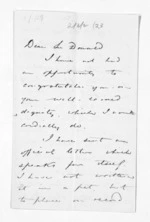 Dear Sir Donald
I have not had
an opportunity to
congratulate you on
your well-earned
dignity, which I most
cordially do.
I have sent an
official letter which
speaks for itself
I have not written
it in a pet but
to place on record